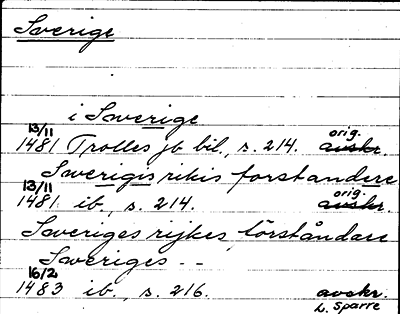 Sverige
i Swerige
13/11 orig.
1481 Trolles jb bil., s. 214. avskr.
Swerigis rikis forstandere
13/11 orig.
1481. ib., s. 214. avskr.
Sweriges rijkes förståndare
Sweriges - -
16/2
1483 ib., s. 216. avskr.
L. Sparre